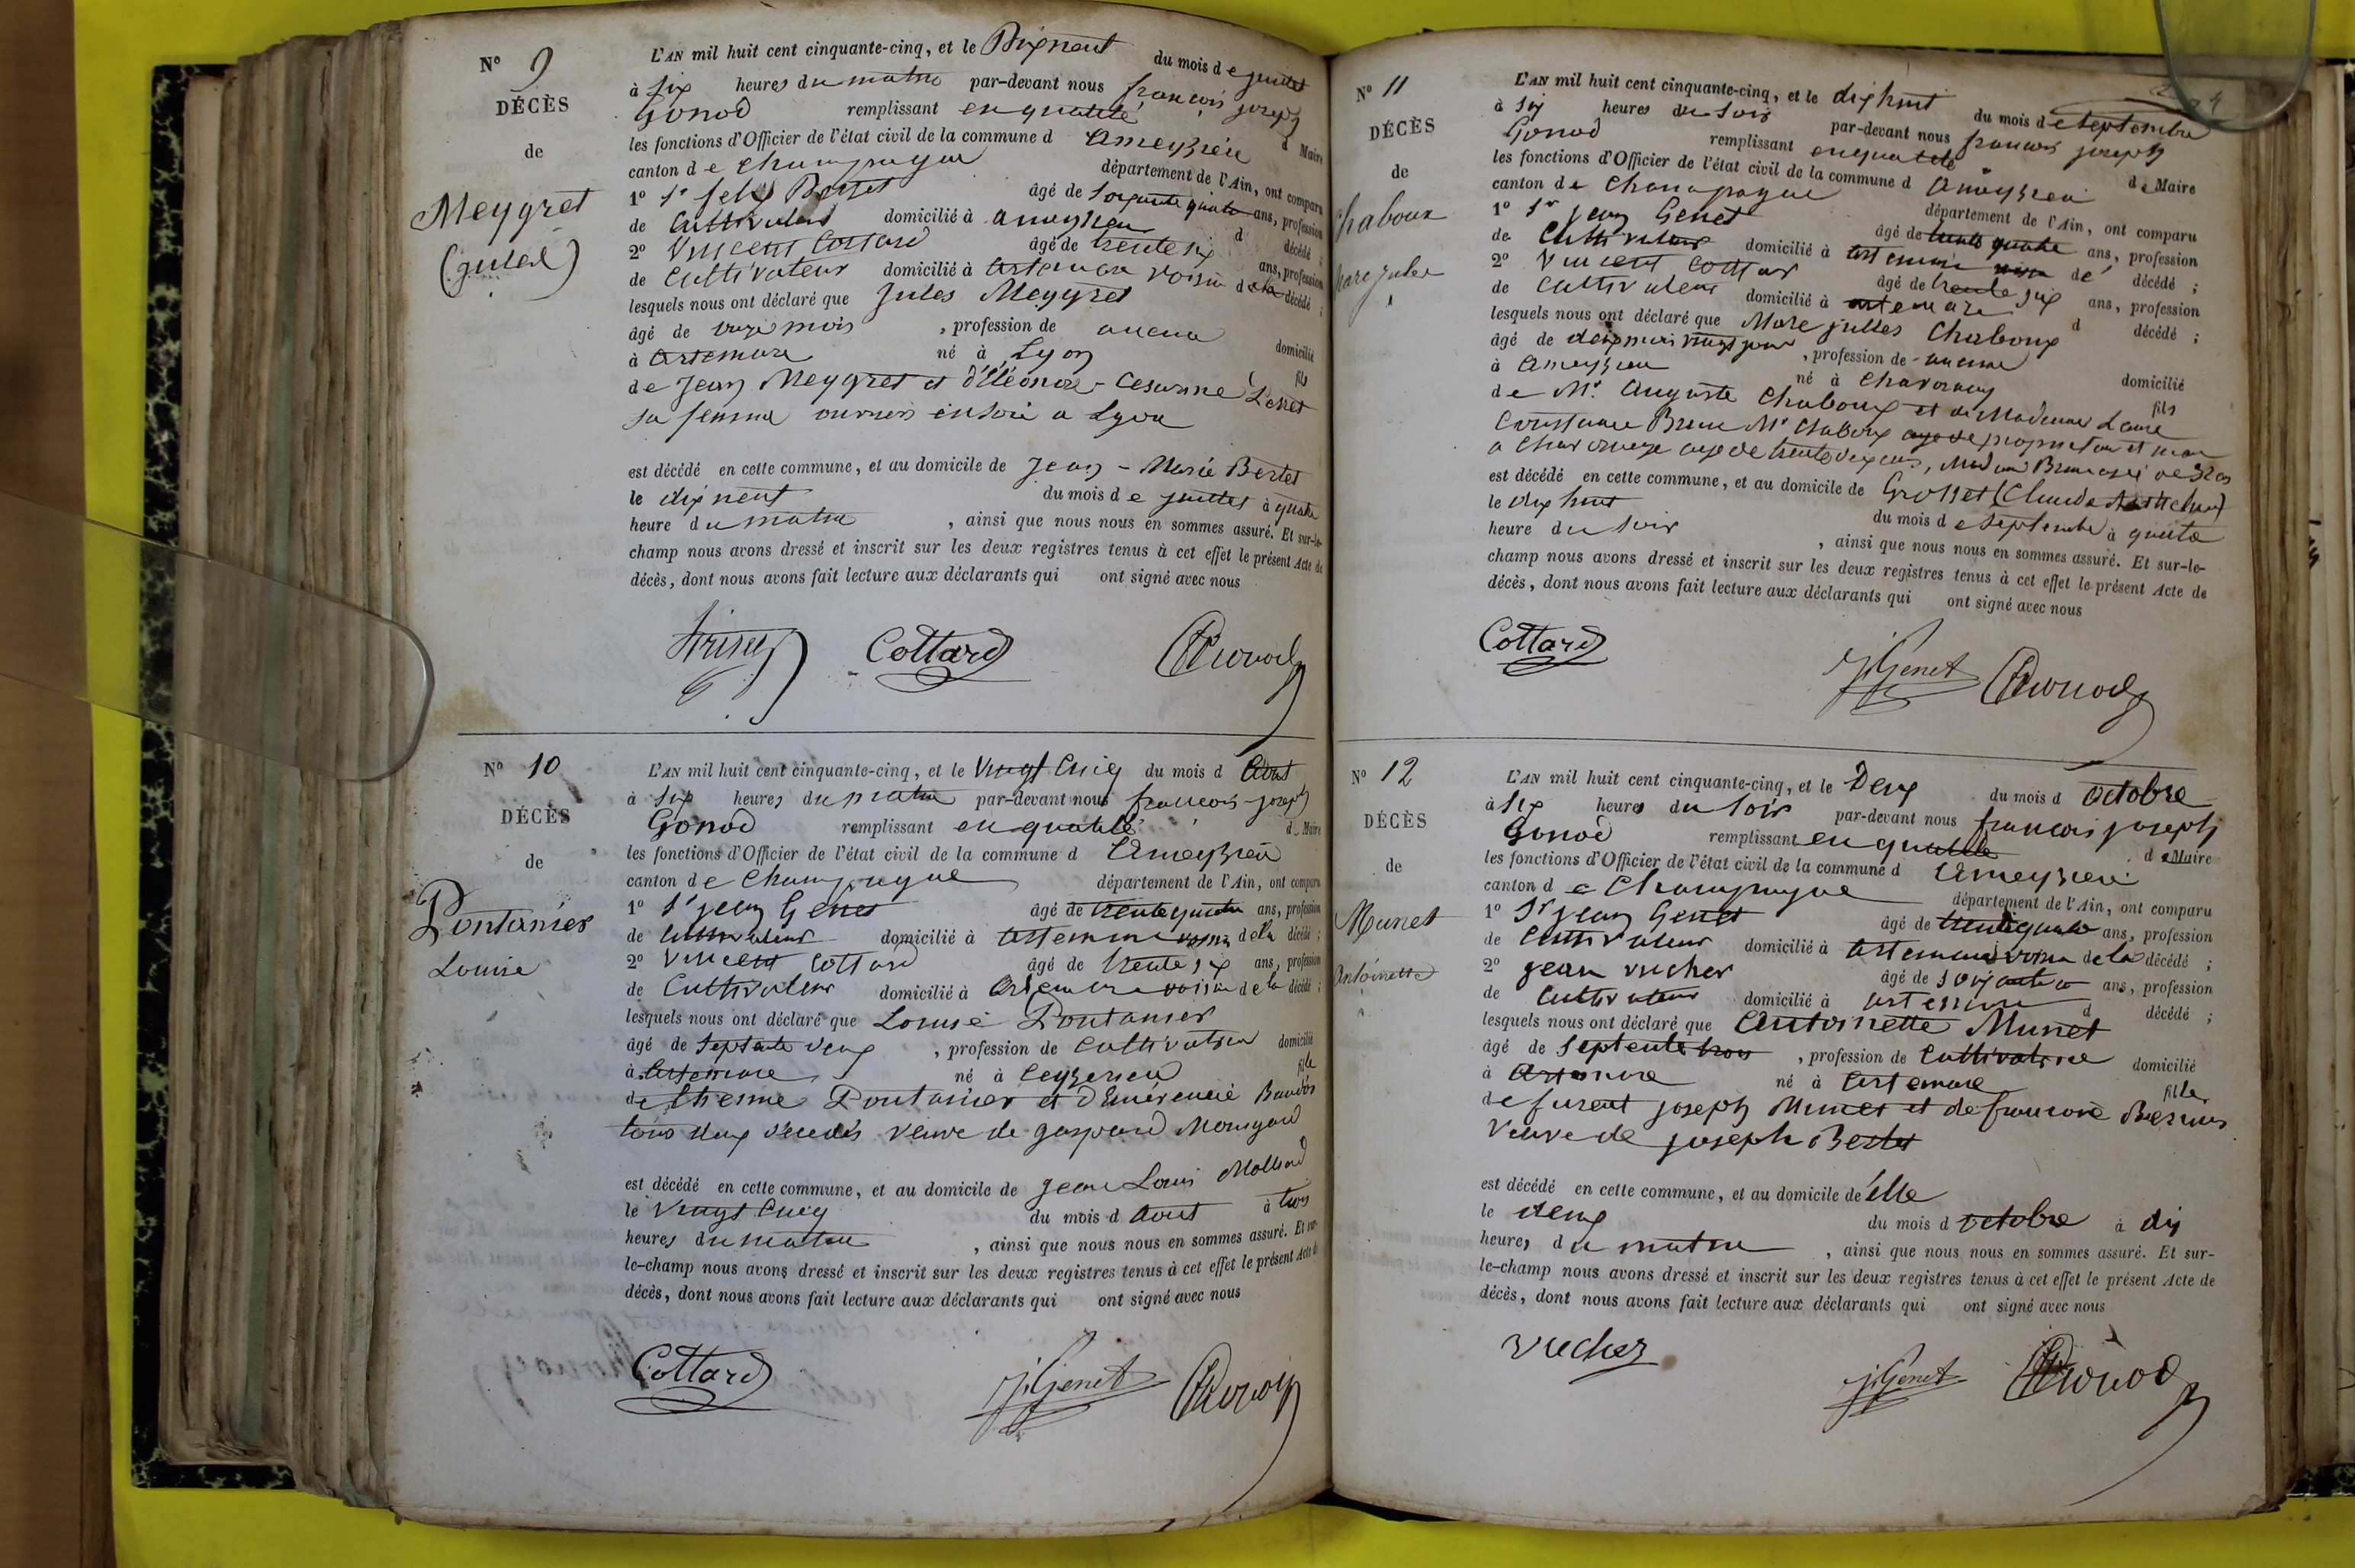 N° 9
DÉCÈS
de
Meygret
(jules)
L'AN mil huit cent cinquante-cinq, et le Dixneuf du mois de juillet
à six heures du matin par-devant nous françois joseph
Gonod remplissant en qualité de Maire
les fonctions d'Officier de l'état civil de la commune d Ameyzieu
canton de Champagne département de l'Ain, ont comparu
1° Sr felix âgé de soixante quatre ans, profession
de Cultivateur domicilié à ameyzieu d décédé ;
2° Vincent Cottard âgé de trente six ans, profession
de Cultivateur domicilié à Artemare voisin de la décédé ;
lesquels nous ont déclaré que Jules Meygret
âgé de onze mois , profession de aucune domicilié
à Artemare né à Lyon fils
de Jean Meygret et d'éléonore Cesarine Genet
sa femme ouvriers en soie a Lyon
est décédé en cette commune, et au domicile de Jean-Marie Bertet
le dix neuf du mois de juillet à quatre
heure du matin , ainsi que nous nous en sommes assuré. Et sur-le-
champ nous avons dressé et inscrit sur les deux registres tenus à cet effet le présent Acte de
décès, dont nous avons fait lecture aux déclarants qui ont signé avec nous
Cottard Gonod
N° 10
DÉCÈS
de
Pontanier
Louise
L'AN mil huit cent cinquante-cinq, et le Vingt Cinq du mois d Aout
à six heures du matin par-devant nous françois joseph
Gonod remplissant en qualité de Maire
les fonctions d'Officier de l'état civil de la commune d Ameyzieu
canton de Champagne département de l'Ain, ont comparu
1° Sr jean Genet âgé de trente quatre ans, profession
de Cultivateur domicilié à Artemare voisin de la décédé ;
2° Vincent Cottard âgé de trente six ans, profession
de Cultivateur domicilié à Artemare voisin de la décédé ;
lesquels nous ont déclaré que Louise Pontanier
âgé de septente deux , profession de Cultivatrice domicilié
à Artemare né à Ceyzerieu fille
de Etienne Pontanier et d'Emérencie
tous deux décédés veuve de gaspard
est décédé en cette commune, et au domicile de jean Louis Mollard
le Vingt Cinq du mois d Aout à trois
heures du matin , ainsi que nous nous en sommes assuré. Et sur-
le-champ nous avons dressé et inscrit sur les deux registres tenus à cet effet le présent Acte de
décès, dont nous avons fait lecture aux déclarants qui ont signé avec nous
Cottard J. Genet Gonod
N° 11
DÉCÈS
de
Chaboux
marc jules
L'AN mil huit cent cinquante-cinq, et le dix huit du mois de septembre
à six heures du soir par-devant nous francois joseph
Gonod remplissant en qualité de Maire
les fonctions d'Officier de l'état civil de la commune d Ameyzieu
canton de Champagne département de l'Ain, ont comparu
1° Sr jean Genet âgé de trente quatre ans, profession
de Cultivateur domicilié à Artemare voisin de décédé ;
2° Vincent Cottard âgé de trente six ans, profession
de Cultivateur domicilié à artemare d décédé ;
lesquels nous ont déclaré que Marc julles Chaboux
âgé de deux mois vingt jours , profession de aucune domicilié
à Ameyzieu né à Chavornay fils
de Mr. Auguste Chaboux et de Madame Laure
Constance Brun Mr Chaboux propriétaire et
a Chavornay agé de trente deux ans, Madame Brun agée de 32 ans
est décédé en cette commune, et au domicile de Grosset (Claude Anthelme)
le dix huit du mois de septembre à quatre
heure du soir , ainsi que nous nous en sommes assuré. Et sur-le-
champ nous avons dressé et inscrit sur les deux registres tenus à cet effet le présent Acte de
décès, dont nous avons fait lecture aux déclarants qui ont signé avec nous
Cottard J. Genet Gonod
N° 12
DÉCÈS
de
Munet
Antoinette
L'AN mil huit cent cinquante-cinq, et le Deux du mois d Octobre
à six heures du soir par-devant nous francois joseph
Gonod remplissant en qualité de Maire
les fonctions d'Officier de l'état civil de la commune d Ameyzieu
canton de Champagne département de l'Ain, ont comparu
1° Sr jean Genet âgé de trente quatre ans, profession
de Cultivateur domicilié à Artemare voisin de la décédé ;
2° jean vucher âgé de soixante ans, profession
de Cultivateur domicilié à artemare d décédé ;
lesquels nous ont déclaré que Antoinette Munet
âgé de septente trois , profession de Cultivatrice domicilié
à Artemare né à Artemare fille
de furent joseph Munet et de francoise
veuve de joseph Bertet
est décédé en cette commune, et au domicile de elle
le deux du mois d octobre à dix
heures du matin , ainsi que nous nous en sommes assuré. Et sur-
le-champ nous avons dressé et inscrit sur les deux registres tenus à cet effet le présent Acte de
décès, dont nous avons fait lecture aux déclarants qui ont signé avec nous
vucher J. Genet Gonod